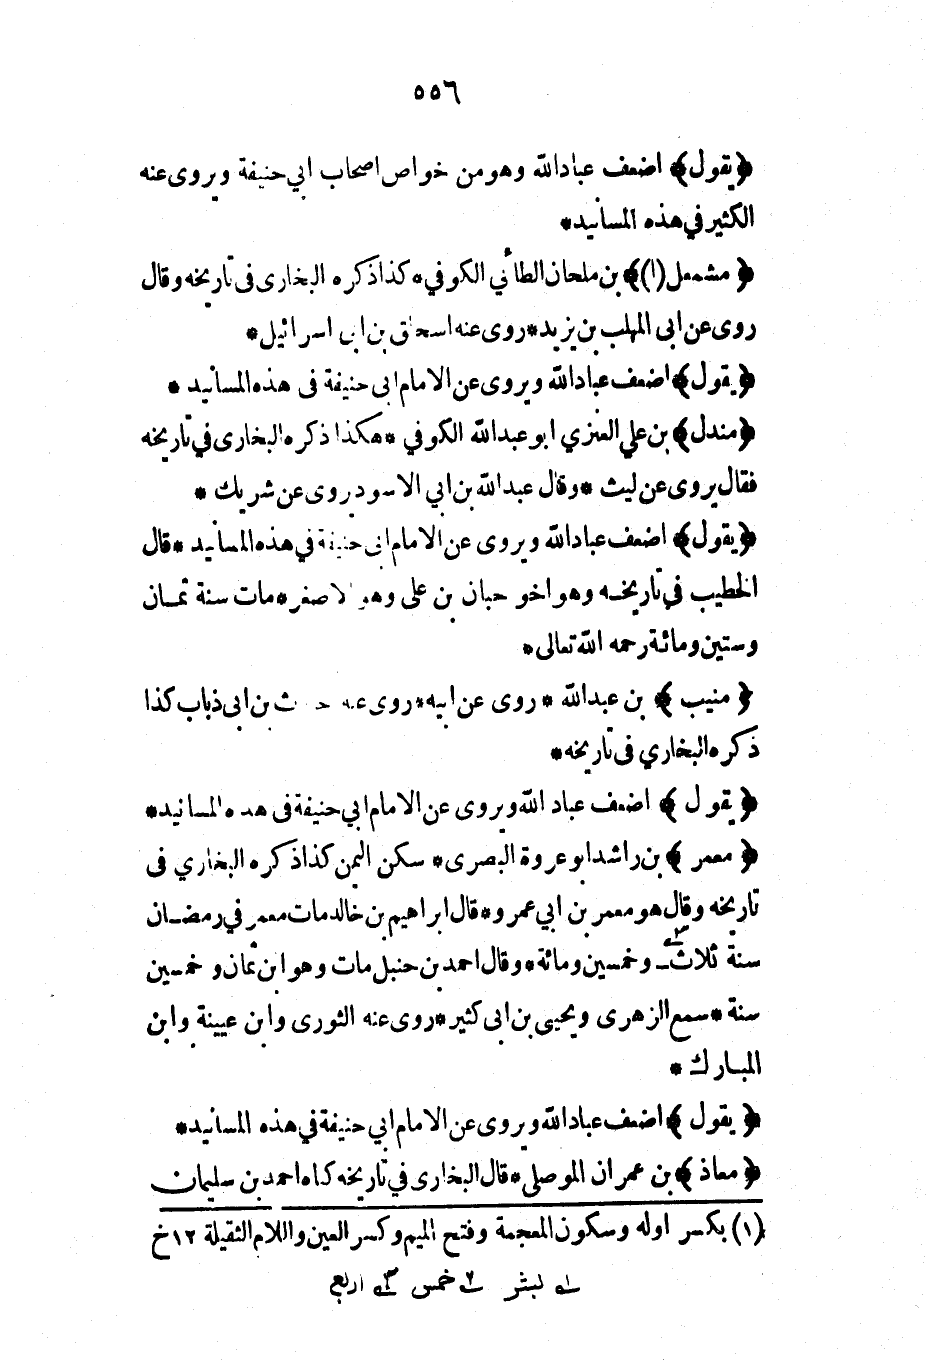 ٥٥٦
﴿يقول﴾ اضعف عباد الله وهو من خواص اصحاب ابي حنيفة ويروى عنه
الكثير في هذه المسانيد*
﴿مشمعل (١)﴾ بن ملحان الطائي الكوفي* كذا ذكره البخارى فى تاريخه وقال
روى عن ابى المهلب بن يزيد* روى عنه اسحاق بن ابى اسرائيل*
﴿يقول﴾ اضعف عباد الله ويروى عن الامام ابى حنيفة فى هذه المسانيد*
﴿مندل﴾ بن علي العنزي ابو عبد الله الكوفي* هكذا ذكره البخارى في تاريخه
فقال يروى عن ليث* وقال عبد الله بن ابي الاسود روى عن شريك*
﴿يقول﴾ اضعف عباد الله ويروى عن الامام ابى حنيفة في هذه المسانيد* قال
الخطيب في تاريخـه وهو اخو حبان بن على وهو الاصغر* مات سنة ثمـان
وستين ومائة رحمه الله تعالى*
﴿منيب﴾ بن عبد الله* روى عن ابيه* روى عنه بن ابى ذباب كذا
ذكره البخاري فى تاريخه*
﴿يقول﴾ اضعف عباد الله ويروى عن الامام ابي حنيفة فى هذه المسانيد*
﴿معمر﴾ بن راشد ابو عروة البصرى* سكن اليمن كذا ذكره البخاري فى
تاريخه وقال هو معمر بن ابي عمرو* قال ابراهيم بن خالد مات معمر في رمضـان
سنة ثلاث وخمسين ومائة* وقال احمد بن حنبل مات وهو ابن ثمان وخمسين
سنة* سمع الزهرى ويحيى بن ابى كثير* روى عنه الثورى وابن عيينة وابن
المبـارك*
﴿يقول﴾ اضعف عباد الله ويروى عن الامام ابي حنيفة في هذه المسانيد*
﴿معاذ﴾ بن عمران الموصلي* قال البخارى في تاريخه كناه احمد بن سليمان
(١) بكسر اوله وسكون المعجمة وفتح الميم وكسر العين واللام الثقيلة ١٢ خ
خمس اربع